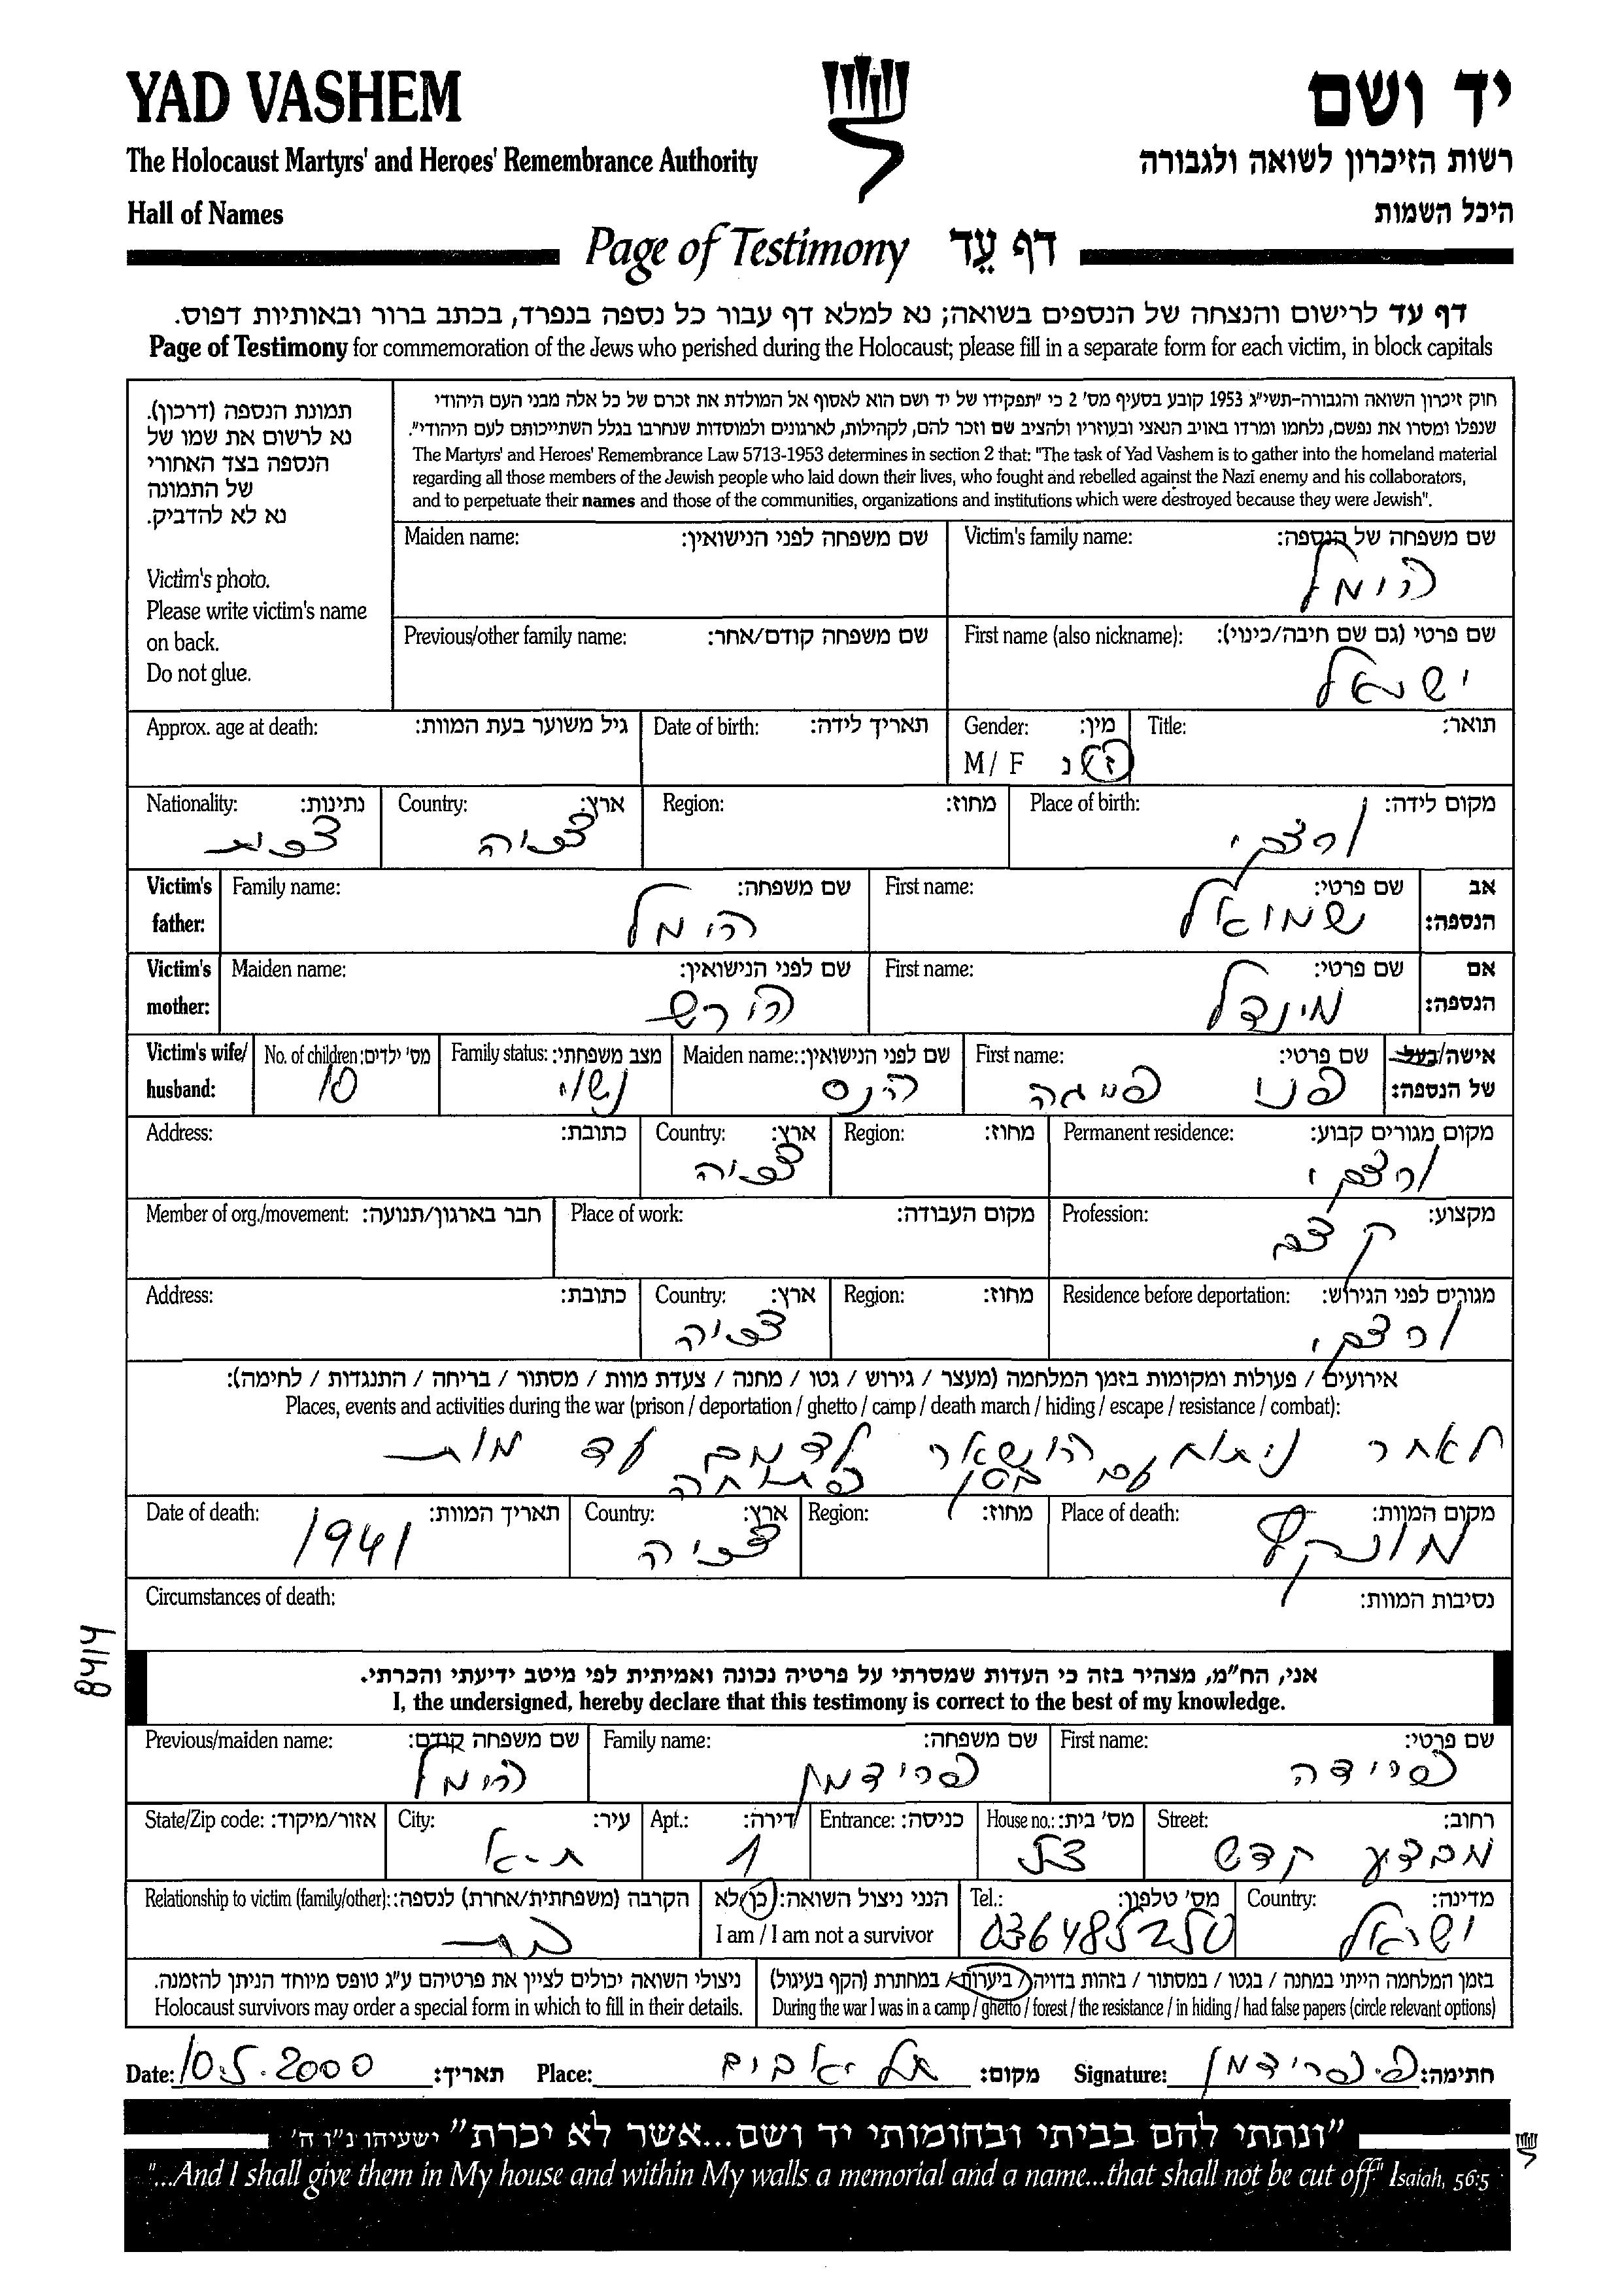 YAD VASHEM
יד ושם
The Holocaust Martyrs' and Heroes' Remembrance Authority
רשות הזיכרון לשואה ולגבורה
Hall of Names
היכל השמות
Page of Testimony דף עֵד
דף עד לרישום והנצחה של הנספים בשואה; נא למלא דף עבור כל נספה בנפרד, בכתב ברור ובאותיות דפוס.
Page of Testimony for commemoration of the Jews who perished during the Holocaust; please fill in a separate form for each victim, in block capitals
תמונת הנספה (דרכון).
נא לרשום את שמו של
הנספה בצד האחורי
של התמונה
נא לא להדביק.
Victim's photo.
Please write victim's name
on back.
Do not glue.
חוק זיכרון השואה והגבורה-תשי"ג 1953 קובע בסעיף מס' 2 כי "תפקידו של יד ושם הוא לאסוף אל המולדת את זכרם של כל אלה מבני העם היהודי
שנפלו ומסרו את נפשם, נלחמו ומרדו באויב הנאצי ובעוזריו ולהציב שם וזכר להם, לקהילות, לארגונים ולמוסדות שנחרבו בגלל השתייכותם לעם היהודי".
The Martyrs' and Heroes' Remembrance Law 5713-1953 determines in section 2 that: "The task of Yad Vashem is to gather into the homeland material
regarding all those members of the Jewish people who laid down their lives, who fought and rebelled against the Nazi enemy and his collaborators,
and to perpetuate their names and those of the communities, organizations and institutions which were destroyed because they were Jewish".
Victim's family name: שם משפחה של הנספה:
הימל
Maiden name: שם משפחה לפני הנישואין:
First name (also nickname): שם פרטי (גם שם חיבה/כינוי):
ישראל
Previous/other family name: שם משפחה קודם/אחר:
Title: תואר:
Gender: מין:
M/ F ז/נ
Date of birth: תאריך לידה:
Approx. age at death: גיל משוער בעת המוות:
Place of birth: מקום לידה:
Region: מחוז:
Country: ארץ:
צכיה
Nationality: נתינות:
צכית
Victim's father: אב הנספה:
First name: שם פרטי:
שמואל
Family name: שם משפחה:
הימל
Victim's mother: אם הנספה:
First name: שם פרטי:
מינדל
Maiden name: שם לפני הנישואין:
הירש
Victim's wife/ husband: אישה/בעל של הנספה:
First name: שם פרטי:
פני פייגה
Maiden name: שם לפני הנישואין:
הנס
Family status: מצב משפחתי:
נשוי
No. of children: מס' ילדים:
10
Permanent residence: מקום מגורים קבוע:
Region: מחוז:
Country: ארץ:
צכיה
Address: כתובת:
Profession: מקצוע:
קצב
Place of work: מקום העבודה:
Member of org./movement: חבר בארגון/תנועה:
Residence before deportation: מגורים לפני הגירוש:
Region: מחוז:
Country: ארץ:
צכיה
Address: כתובת:
אירועים / פעולות ומקומות בזמן המלחמה (מעצר / גירוש / גטו / מחנה / צעדת מוות / מסתור / בריחה / התנגדות / לחימה):
Places, events and activities during the war (prison / deportation / ghetto / camp / death march / hiding / escape / resistance / combat):
לאחר ניתוח הושאר לדמם עד מות
עם בטן פתוחה
Place of death: מקום המוות:
מונקץ
Region: מחוז:
Country: ארץ:
צכיה
Date of death: תאריך המוות:
1941
Circumstances of death: נסיבות המוות:
8414
אני, הח"מ, מצהיר בזה כי העדות שמסרתי על פרטיה נכונה ואמיתית לפי מיטב ידיעתי והכרתי.
I, the undersigned, hereby declare that this testimony is correct to the best of my knowledge.
First name: שם פרטי:
פרידה
Family name: שם משפחה:
פרידמן
Previous/maiden name: שם משפחה קודם:
הימל
Street: רחוב:
מבצע קדש
House no.: מס' בית:
Entrance: כניסה:
Apt.: דירה:
1
City: עיר:
ת-א
State/Zip code: אזור/מיקוד:
Country: מדינה:
ישראל
Tel.: מס' טלפון:
036485250
הנני ניצול השואה: כן/לא
I am / I am not a survivor
Relationship to victim (family/other): הקרבה (משפחתית/אחרת) לנספה:
בת
בזמן המלחמה הייתי במחנה / בגטו / במסתור / בזהות בדויה / ביערות / במחתרת (הקף בעיגול)
During the war I was in a camp / ghetto / forest / the resistance / in hiding / had false papers (circle relevant options)
ניצולי השואה יכולים לציין את פרטיהם ע"ג טופס מיוחד הניתן להזמנה.
Holocaust survivors may order a special form in which to fill in their details.
Date: 10.5.2000 תאריך: Place: תל אביב מקום: Signature: פ. פרידמן חתימה:
"ונתתי להם בביתי ובחומותי יד ושם...אשר לא יכרת" ישעיהו נ"ו ה'
"...And I shall give them in My house and within My walls a memorial and a name...that shall not be cut off." Isaiah, 56:5